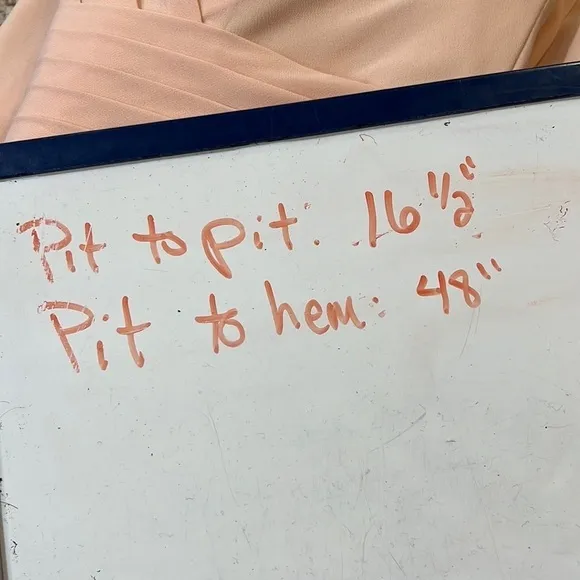 Pit to pit: 16 1/2"
Pit to hem: 48"